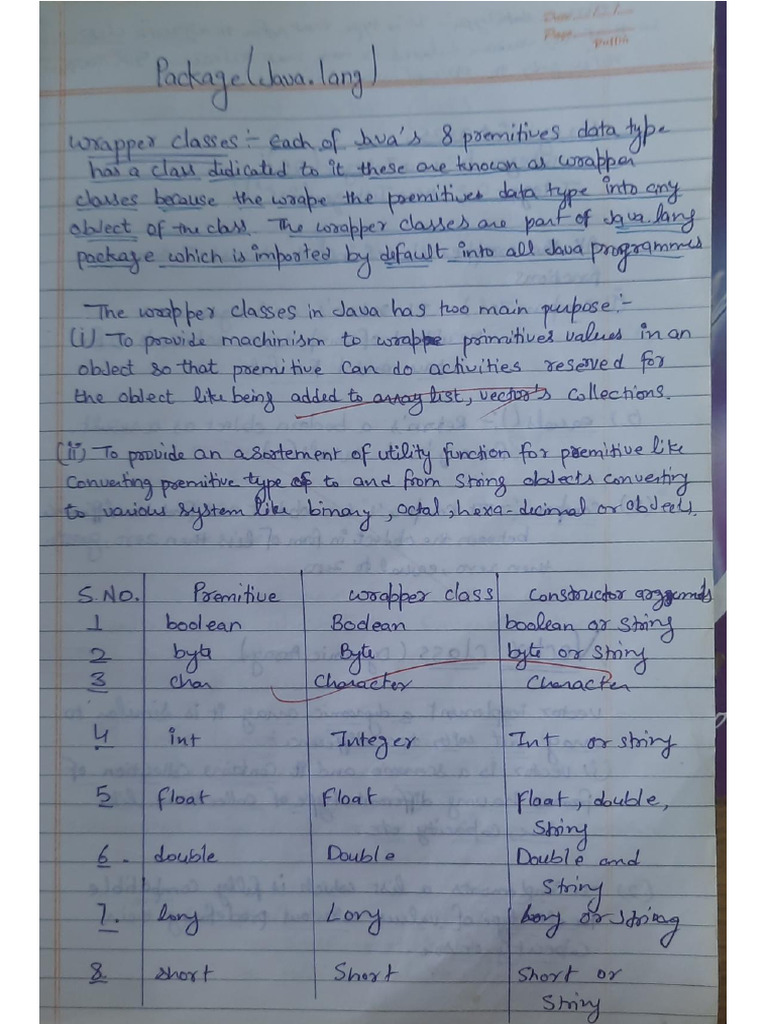 Date
Page
Puffin
Package (Java.lang)
Wrapper classes:- Each of Java's 8 premitives data type
has a class didicated to it these are known as wrapper
classes because the wrape the premitives data type into any
object of the class. The wrapper classes are part of Java.lang
package which is imported by default into all Java programmes
The wrapper classes in Java has two main purpose:-
(i) To provide machinism to wrappe primitives values in an
object so that premitive can do activities reserved for
the object like being added to array list, vector's collections.
(ii) To provide an asortement of utility function for premitive like
Converting premitive type of to and from String objects converting
to various system like binary, octal, hexa-decimal or objects.
S.NO. Premitive wrapper class Constructor arguments
1 boolean Boolean boolean or string
2 byte Byte byte or string
3 char Character Character
4 int Integer Int or string
5 float Float Float, double,
String
6. double Double Double and
String
7. long Long Long or string
8 short Short Short or
String